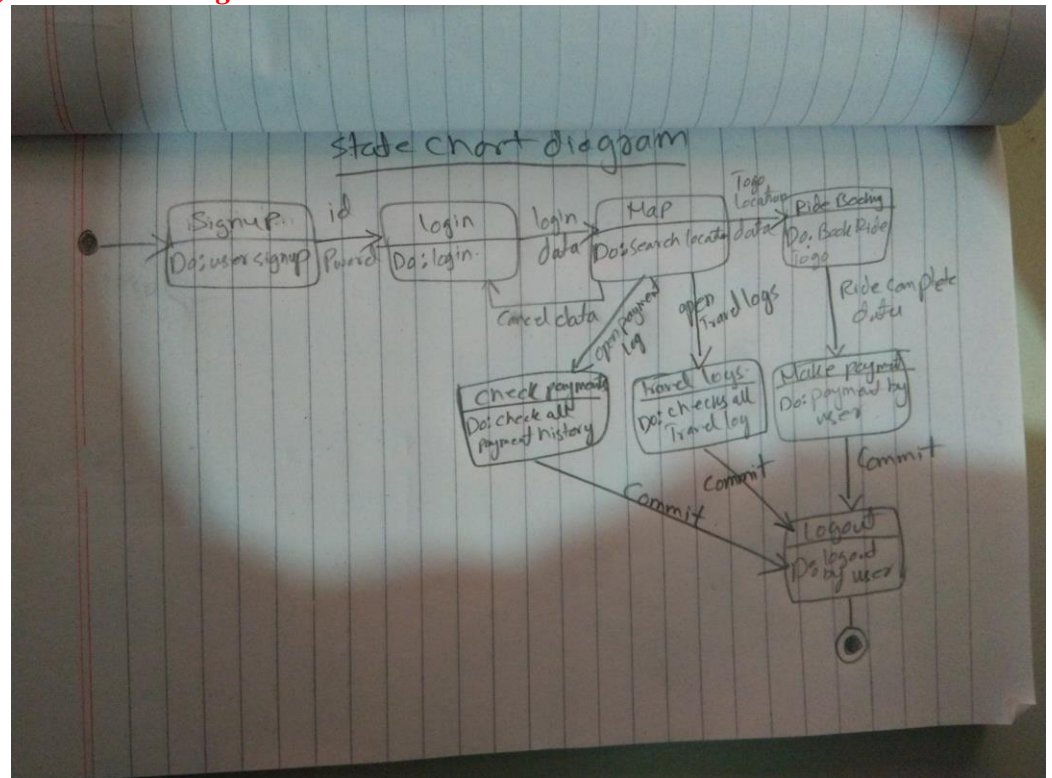 State chart diagram
Signup
Do: user signup
id
login
Do: login
login
data
Map
Do: Search locatio
Togo
Location
data
Do: Book Ride
Togo
Cancel data
open payment
log
open
Travel logs
Ride Complete
data
Check payments
Do: check all
payment history
Travel logs
Do: checks all
Travel log
Make payment
Do: payment by
user
Commit
Commit
Commit
Logout
Do: logout
by user